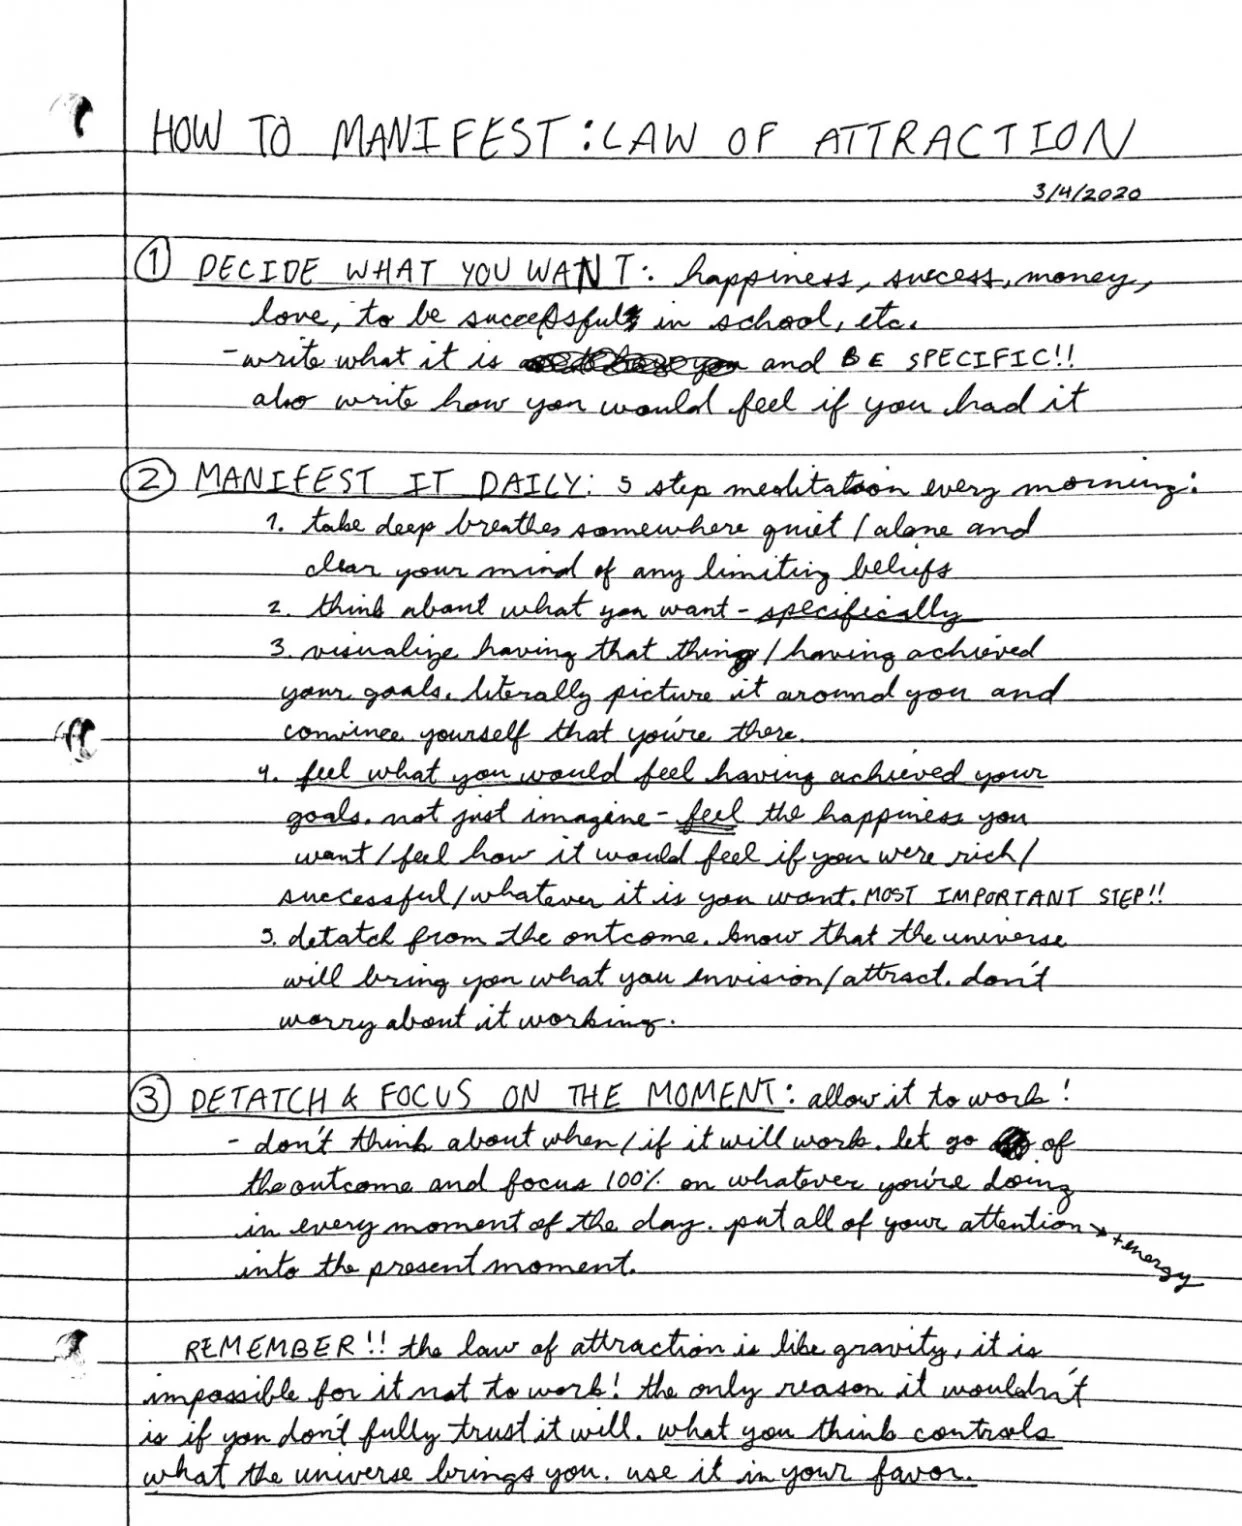 HOW TO MANIFEST: LAW OF ATTRACTION
3/4/2020
① DECIDE WHAT YOU WANT: happiness, success, money,
love, to be successful in school, etc.
- write what it is and BE SPECIFIC!!
also write how you would feel if you had it
② MANIFEST IT DAILY: 5 step meditation every morning:
1. take deep breathes somewhere quiet / alone and
clear your mind of any limiting beliefs
2. think about what you want - specifically
3. visualize having that thing / having achieved
your goals. literally picture it around you and
convince yourself that you're there.
4. feel what you would feel having achieved your
goals. not just imagine - feel the happiness you
want / feel how it would feel if you were rich /
successful / whatever it is you want. MOST IMPORTANT STEP!!
5. detatch from the outcome. know that the universe
will bring you what you envision / attract. don't
worry about it working.
③ DETATCH & FOCUS ON THE MOMENT: allow it to work!
- don't think about when / if it will work. let go of
the outcome and focus 100% on whatever you're doing
in every moment of the day. put all of your attention → + energy
into the present moment.
REMEMBER!! the law of attraction is like gravity, it is
impossible for it not to work! the only reason it wouldn't
is if you don't fully trust it will. what you think controls
what the universe brings you. use it in your favor.